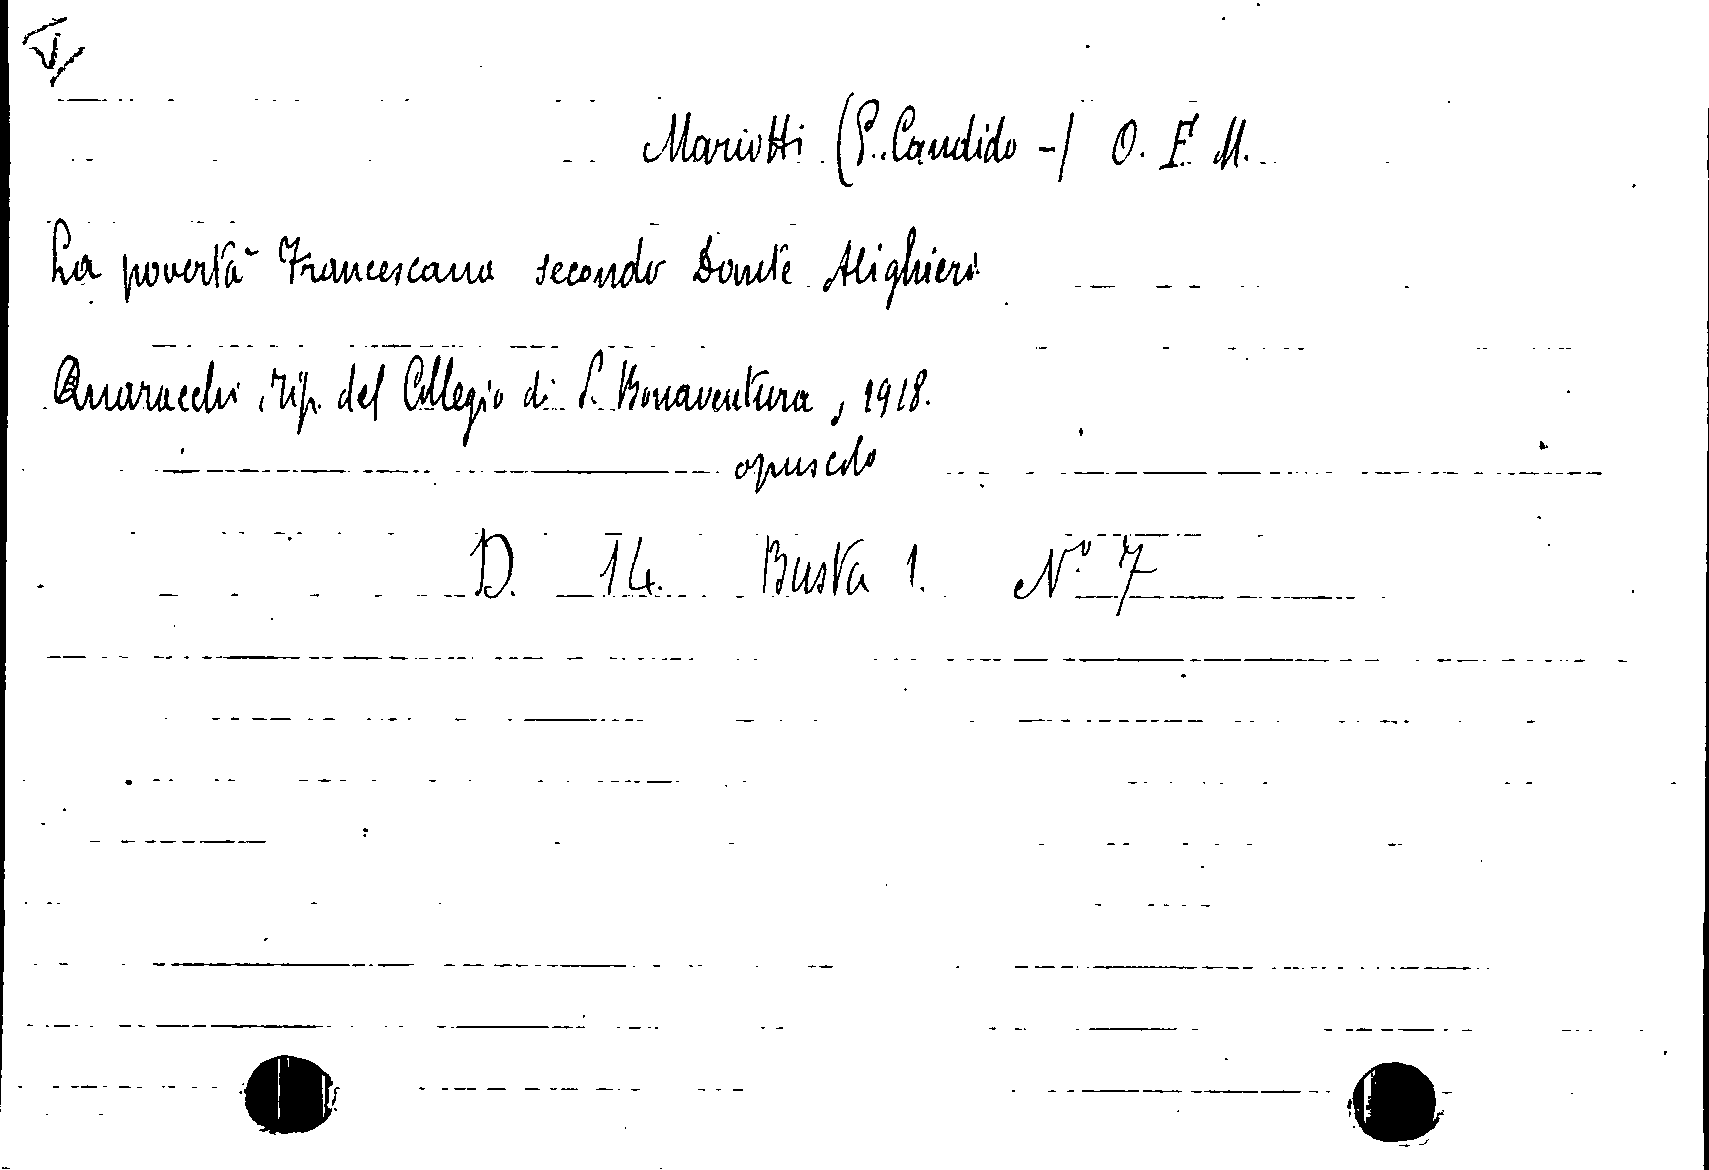 Mariotti (P. Candido -) O. F. M.
La povertà Francescana secondo Dante Alighieri
Quaracchi, tip. del Collegio di S. Bonaventura, 1918.
opuscolo
D. 14. Busta 1. N.º 7